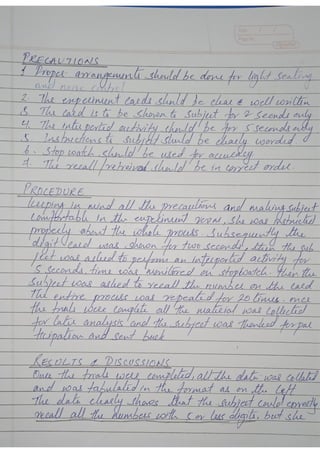 PRECAUTIONS
1. Proper arrangements should be done for light seating
and noise control
2. The experiment cards should be clear & well written
3. The card is to be shown to subject for 2 seconds only
4. The interported activity should be for 5 seconds only
5. Instructions to subject should be clearly worded
6. Stop watch should be used for accuracy
7. The recall/retrieval should be in correct order
PROCEDURE
keeping in mind all the precautions and making subject
comfortable in the experiment room, she was instructed
properly about the whole process. Subsequently the
digit card was shown for two seconds, then the sub
ject was asked to perform an interported activity for
5 seconds. time was monitored on stopwatch. then the
subject was asked to recall the number on the card
The entire process was repeated for 20 times. once
the trials were complete all the material was collected
for later analysis and the subject was thanked for par
ticipation and sent back
RESULTS & DISCUSSIONS
Once the trials were completed, all the data was collected
and was tabulated in the format as on the left
The data clearly shows that the subject could correctly
recall all the numbers with 5 or less digits, but she